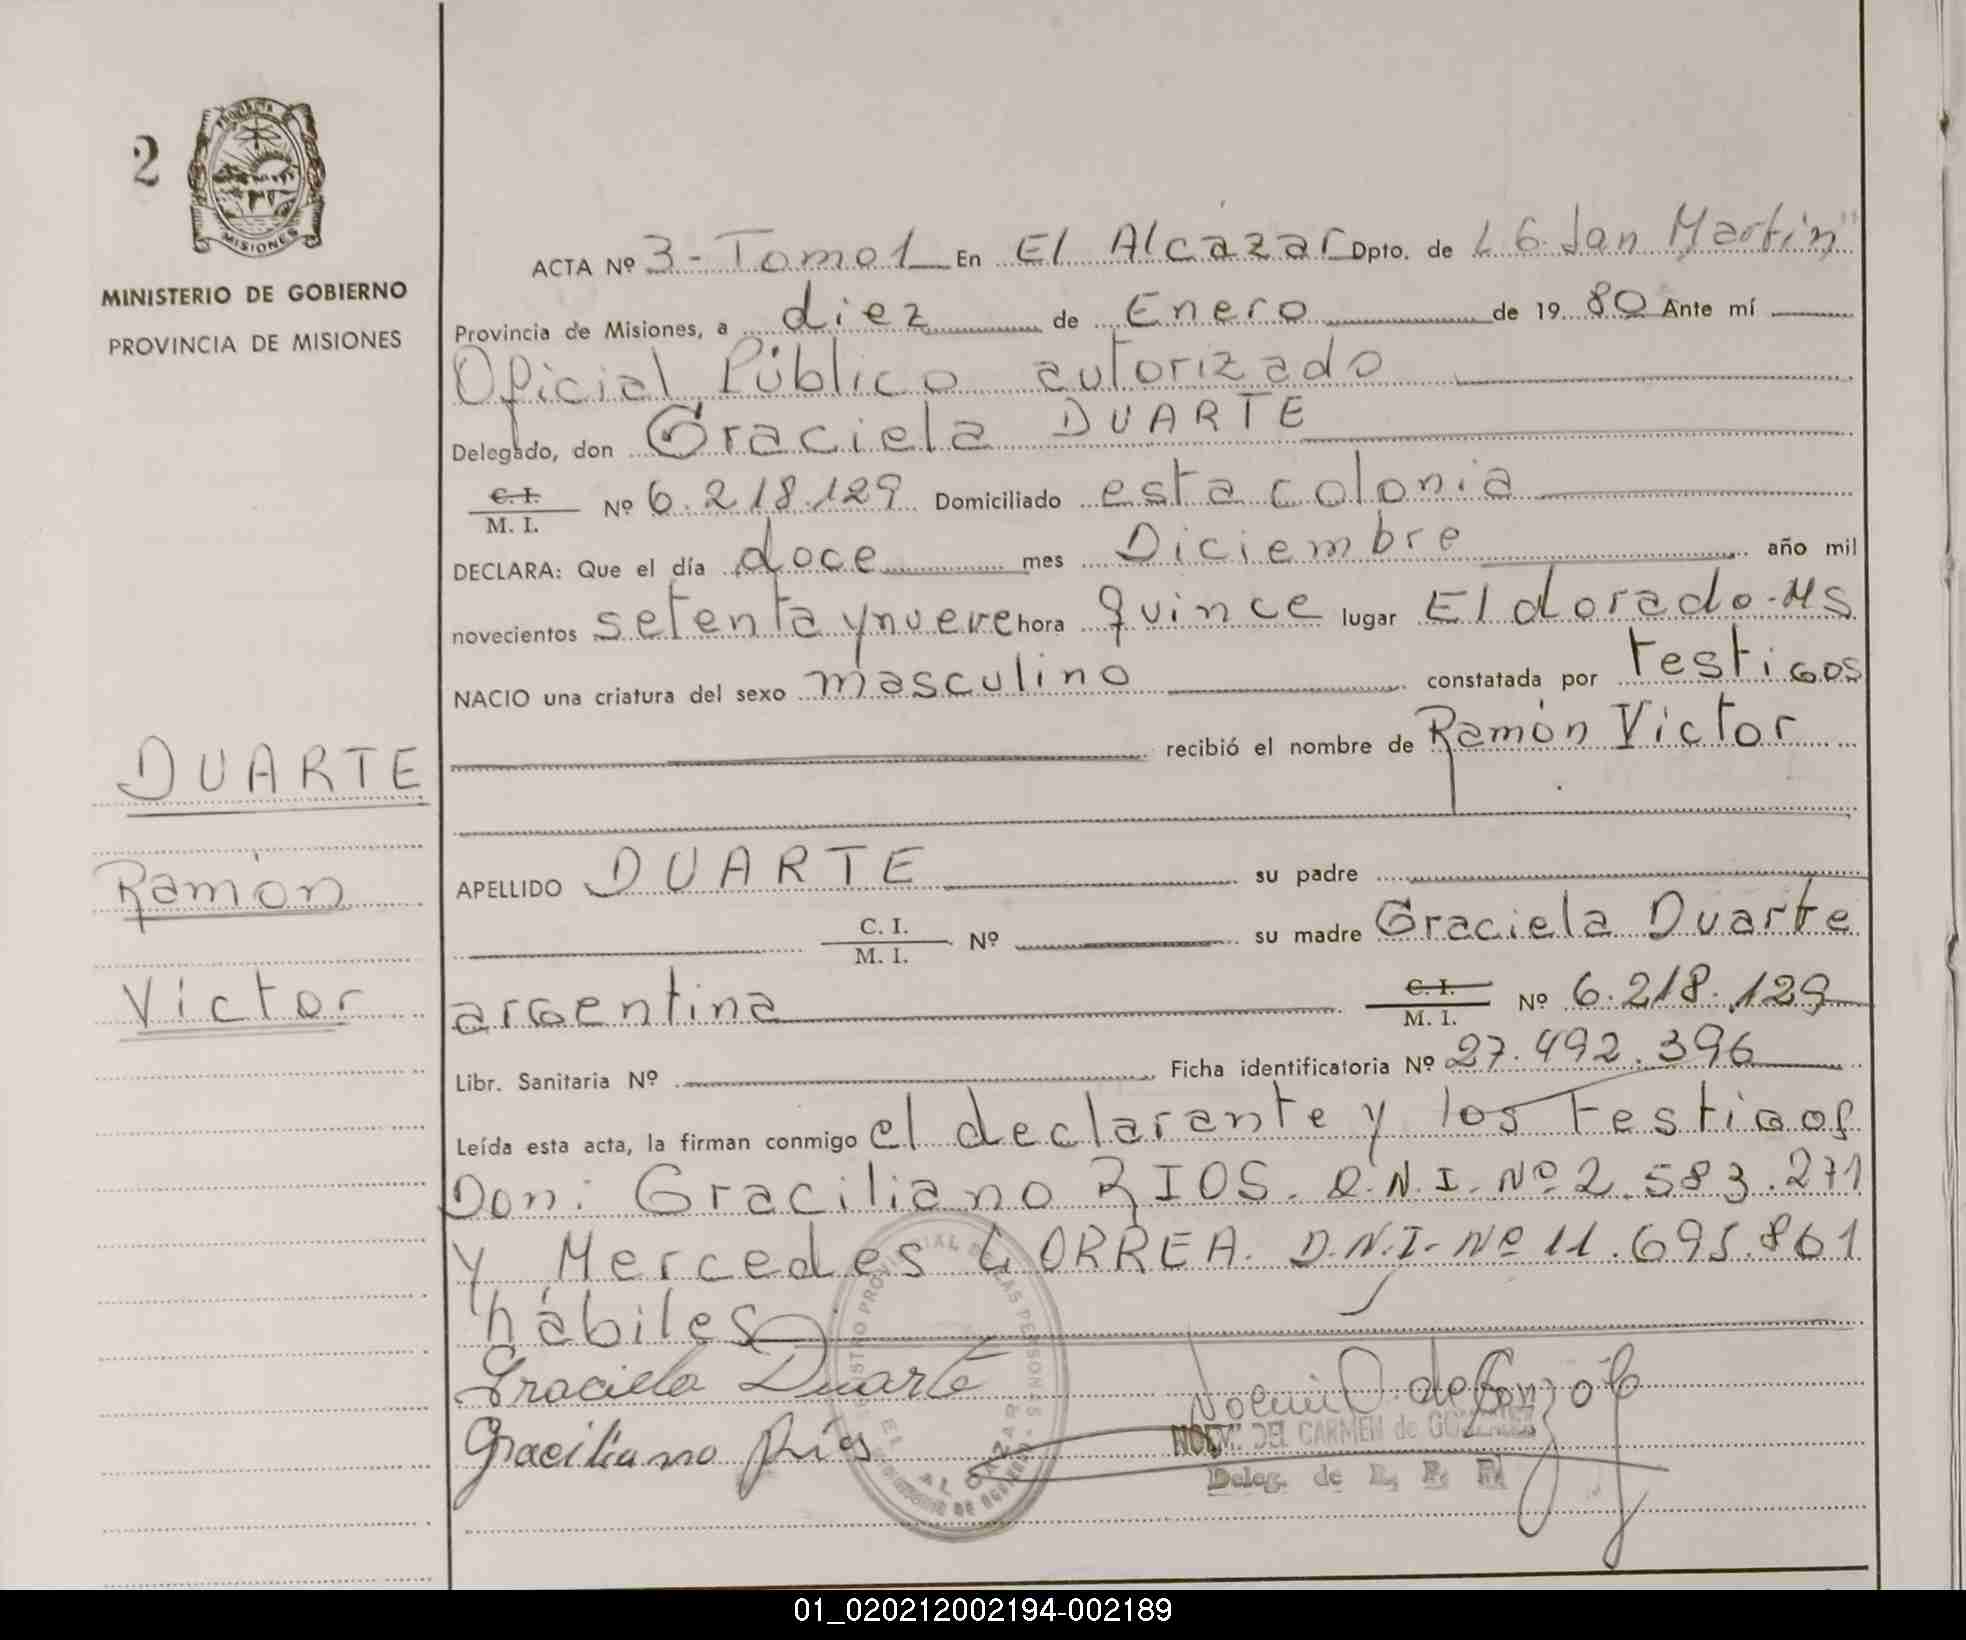 2
PROVINCIA
MISIONES
MINISTERIO DE GOBIERNO
PROVINCIA DE MISIONES
DUARTE
Ramón
Víctor
ACTA Nº 3 - Tomo 1 En El Alcázar Dpto. de L G. San Martín"
Provincia de Misiones, a diez de Enero de 19 80 Ante mí
Oficial Público autorizado
Delegado, don Graciela DUARTE
C. I. / M. I. Nº 6.218.129 Domiciliado esta colonia
DECLARA: Que el día doce mes Diciembre año mil
novecientos setenta y nueve hora quince lugar Eldorado-Ms
NACIO una criatura del sexo masculino constatada por testigos
recibió el nombre de Ramón Víctor
APELLIDO DUARTE su padre
C. I. / M. I. Nº su madre Graciela Duarte
argentina C. I. / M. I. Nº 6.218.129
Libr. Sanitaria Nº Ficha identificatoria Nº 27.492.396
Leída esta acta, la firman conmigo el declarante y los testigos
Don: Graciliano RIOS. D.N.I. Nº 2.583.271
y Mercedes CORREA. D.N.I. Nº 11.695.861
hábiles
Graciela Duarte
Graciliano Ríos
REGISTRO PROVINCIAL DE LAS PERSONAS
EL ALCAZAR
NOEMI DEL CARMEN de GONZALEZ
Deleg. de
01_020212002194-002189